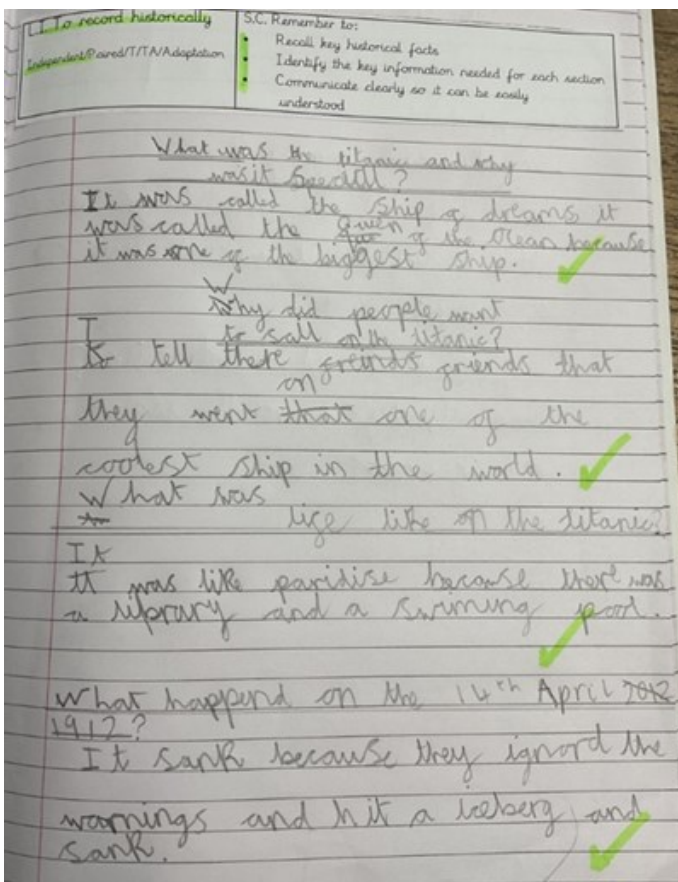 L.I. To record historically
Independent/Paired/T/TA/Adaptation
S.C. Remember to:
Recall key historical facts
Identify the key information needed for each section
Communicate clearly so it can be easily
understood
What was the titanic and why
was it special?
It was called the ship of dreams it
was called the quen of the ocean because
it was one of the biggest ship.
Why did people want
to sall on the titanic?
To tell there freinds friends that
on
they went that one of the
coolest ship in the world.
What was
life like on the titanic?
It
It was like paridise because there was
a liprary and a swiming pool.
What happend on the 14th April 2012
1912?
It sank because they ignord the
warnings and hit a iceberg and
sank.